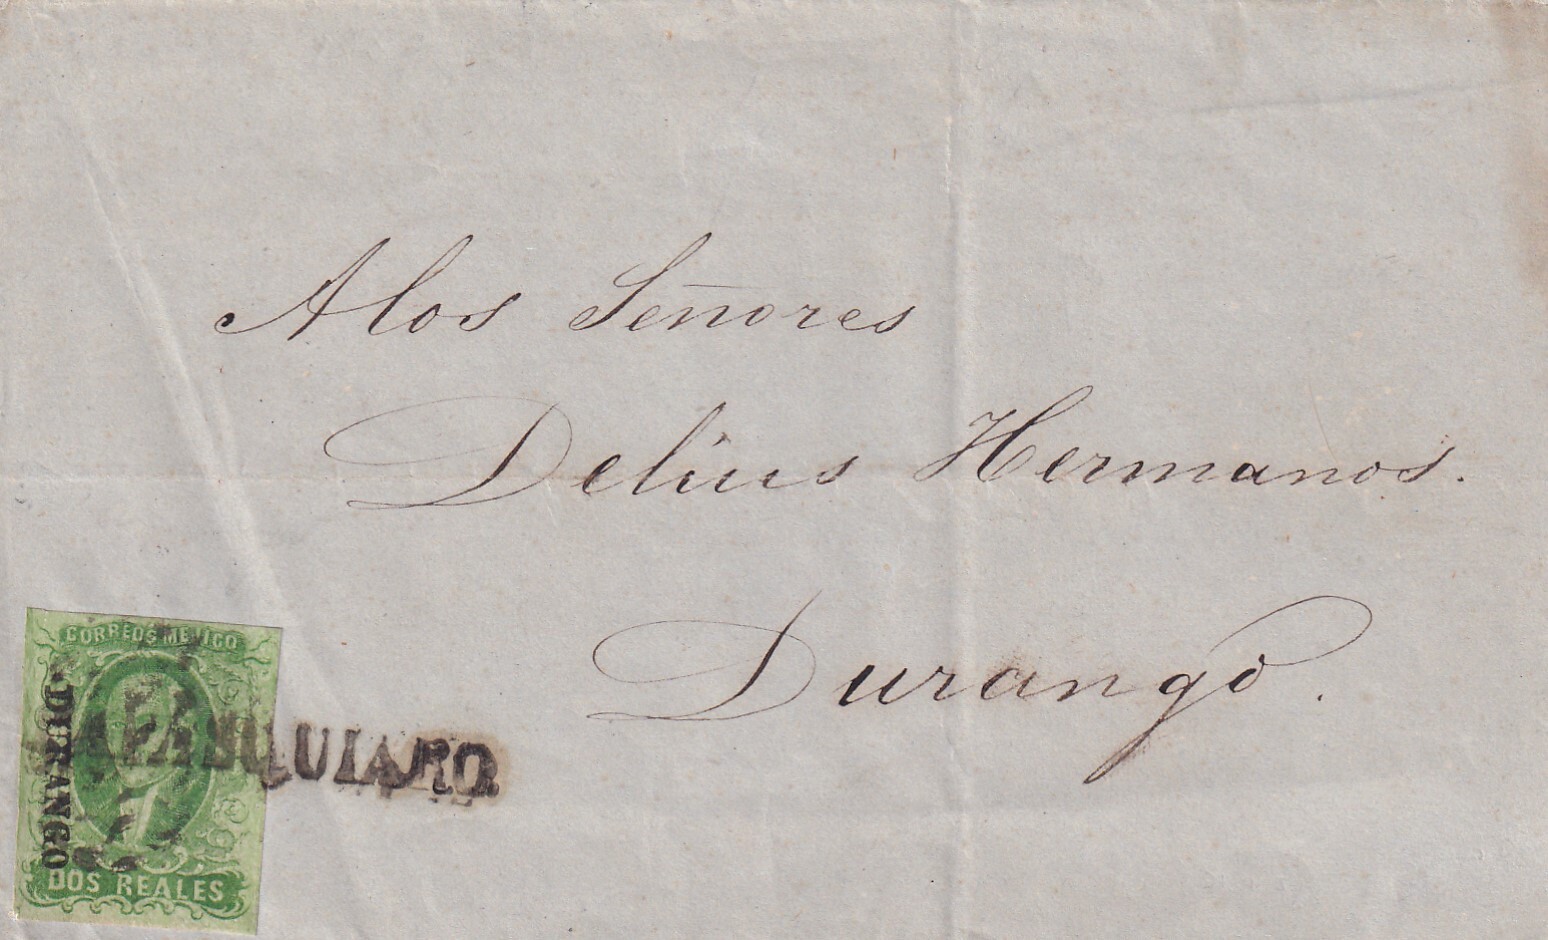 A los Señores
Delius Hermanos.
Durango.
CORREOS MEJICO
DURANGO
DOS REALES